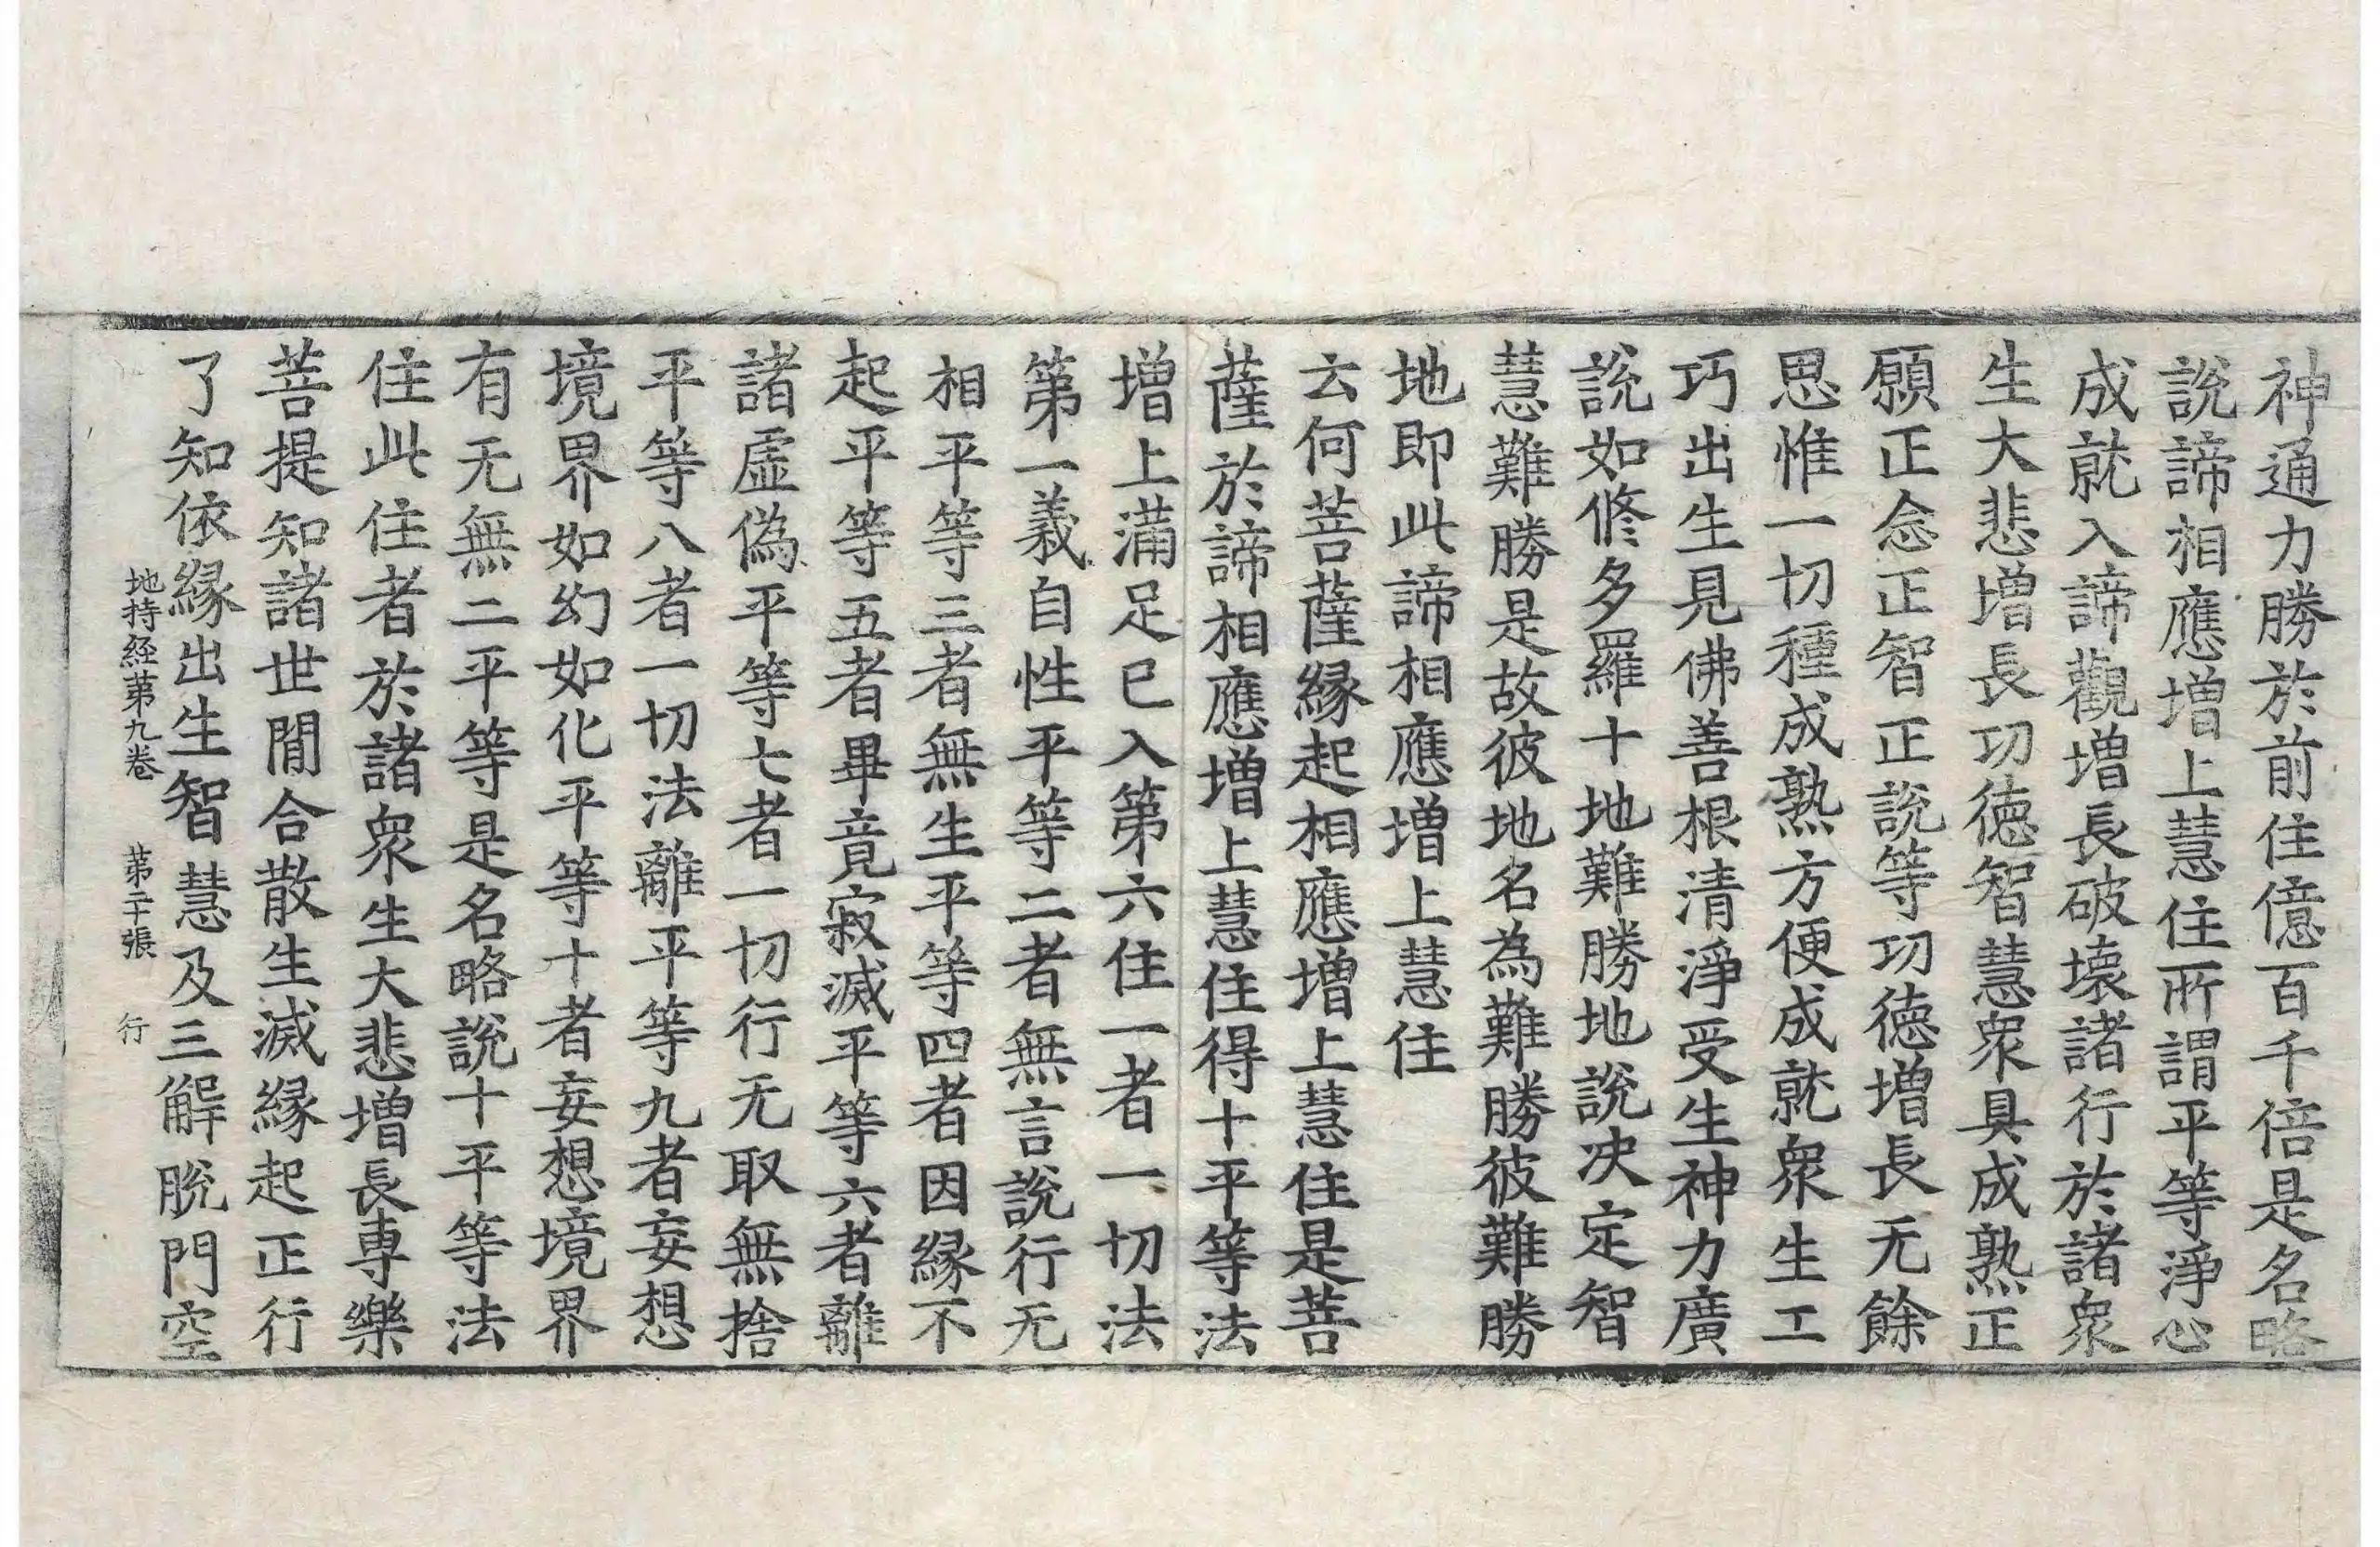 神通力勝於前住億百千倍是名略
說諦相應增上慧住所謂平等淨心
成就入諦觀增長破壞諸行於諸衆
生大悲增長功德智慧衆具成熟正
願正念正智正說等功德增長无餘
思惟一切種成熟方便成就衆生工
巧出生見佛善根清淨受生神力廣
說如修多羅十地難勝地說決定智
慧難勝是故彼地名為難勝彼難勝
地即此諦相應增上慧住
云何菩薩緣起相應增上慧住是菩
薩於諦相應增上慧住得十平等法
增上滿足已入第六住一者一切法
第一義自性平等二者無言說行无
相平等三者無生平等四者因緣不
起平等五者畢竟寂滅平等六者離
諸虛偽平等七者一切行无取無捨
平等八者一切法離平等九者妄想
境界如幻如化平等十者妄想境界
有无無二平等是名略說十平等法
住此住者於諸衆生大悲增長専樂
菩提知諸世間合散生滅緣起正行
了知依緣出生智慧及三解脫門空
地持経苐九卷 苐二十張 行